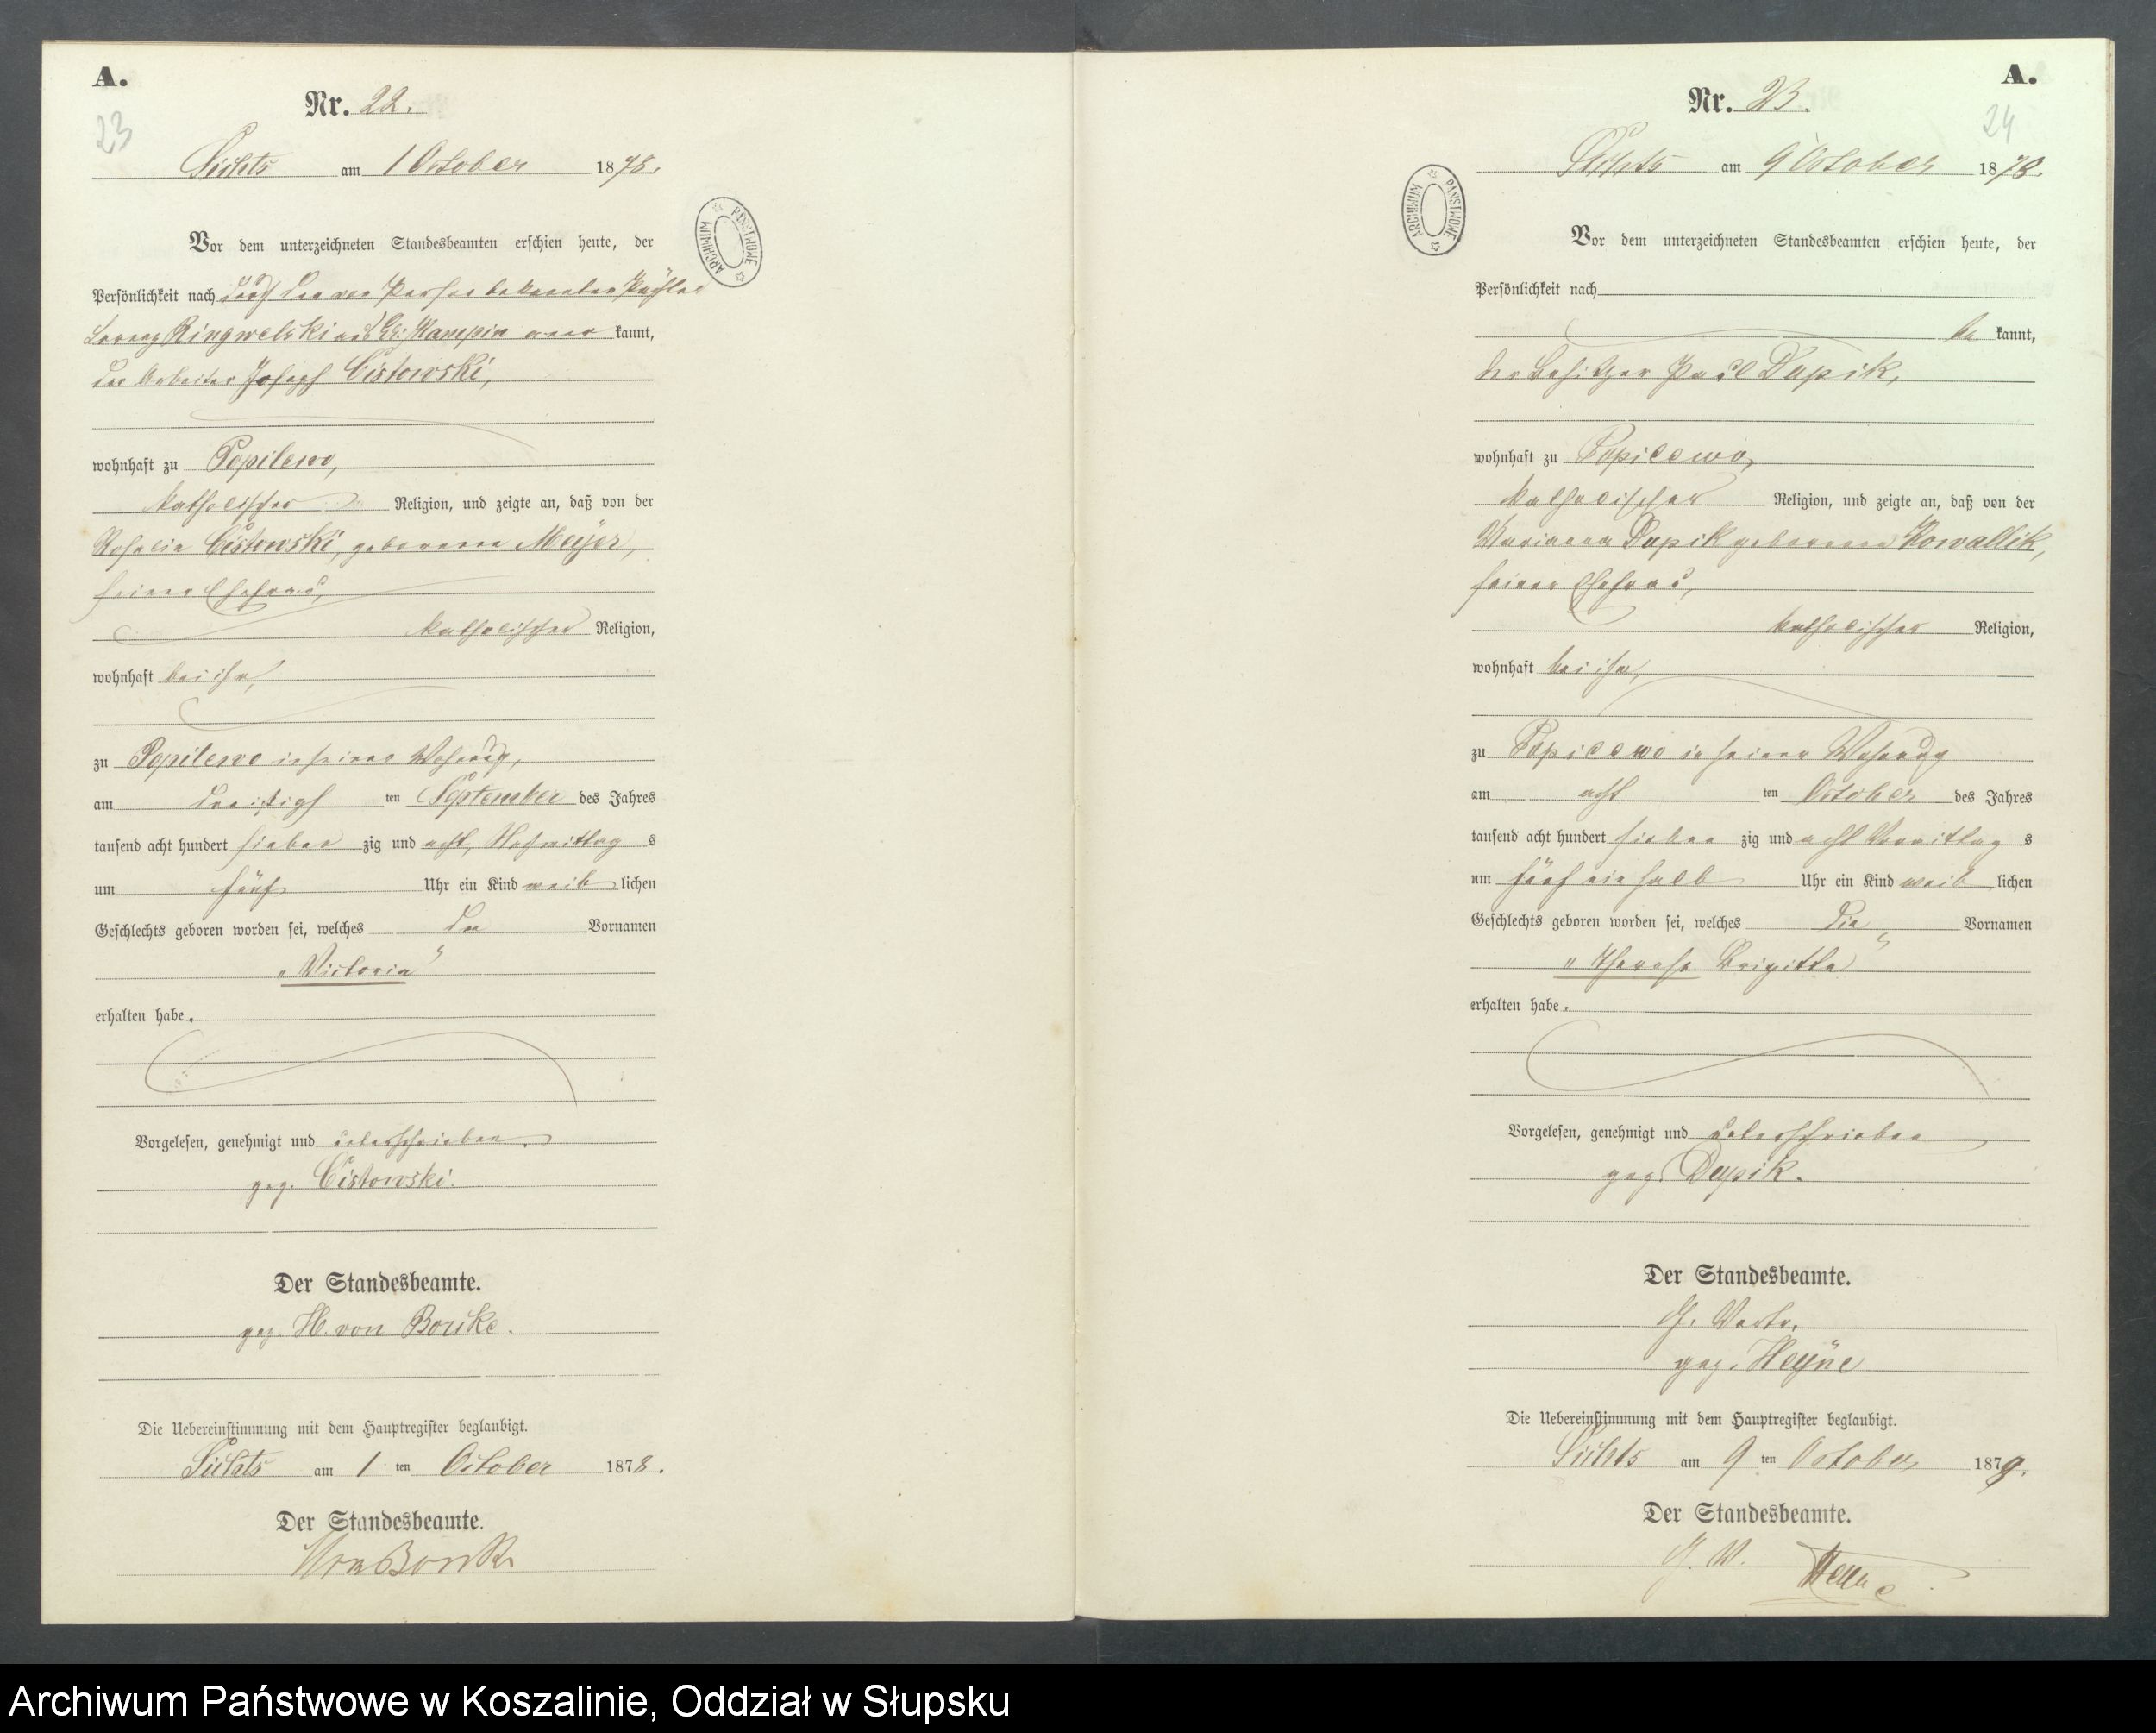 A.
Nr. 22.
23
am 1 October 1878.
Vor dem unterzeichneten Standesbeamten erschien heute, der
Persönlichkeit nach durch den von Person bekannten Pächter
Ringwelski und Kampin aner kannt,
der Arbeiter Joseph Cistowski,
wohnhaft zu Popilewo,
katholischer Religion, und zeigte an, daß von der
Rosalia Cistowski, geborenen Meÿer,
seiner Ehefrau,
katholischer Religion,
wohnhaft bei ihm,
zu Popilewo in seiner Wohnung,
am dreißigst ten September des Jahres
tausend acht hundert sieben zig und acht, Nachmittag s
um fünf Uhr ein Kind weib lichen
Geschlechts geboren worden sei, welches den Vornamen
„Victoria“
erhalten habe.
Vorgelesen, genehmigt und unterschrieben.
gez. Cistowski.
Der Standesbeamte.
gez. H. von
Die Uebereinstimmung mit dem Hauptregister beglaubigt.
am 1 ten October 1878.
Der Standesbeamte.
ARCHIWUM PAŃSTWOWE
A.
Nr. 23.
24
am 9 October 1878.
Vor dem unterzeichneten Standesbeamten erschien heute, der
Persönlichkeit nach
be kannt,
der Besitzer Paul Dupik,
wohnhaft zu Popilewo,
katholischer Religion, und zeigte an, daß von der
Marianna Dupik geborenen Kowallik,
seiner Ehefrau,
katholischer Religion,
wohnhaft bei ihm,
zu Popilewo in seiner Wohnung
am acht ten October des Jahres
tausend acht hundert sieben zig und acht Vormittag s
um fünf ein halb Uhr ein Kind weib lichen
Geschlechts geboren worden sei, welches die Vornamen
„Therese Brigitta“
erhalten habe.
Vorgelesen, genehmigt und unterschrieben
gez. Dupik.
Der Standesbeamte.
gez. Heÿne
Die Uebereinstimmung mit dem Hauptregister beglaubigt.
am 9 ten October 1878.
Der Standesbeamte.
Heyne
ARCHIWUM PAŃSTWOWE
Archiwum Państwowe w Koszalinie, Oddział w Słupsku